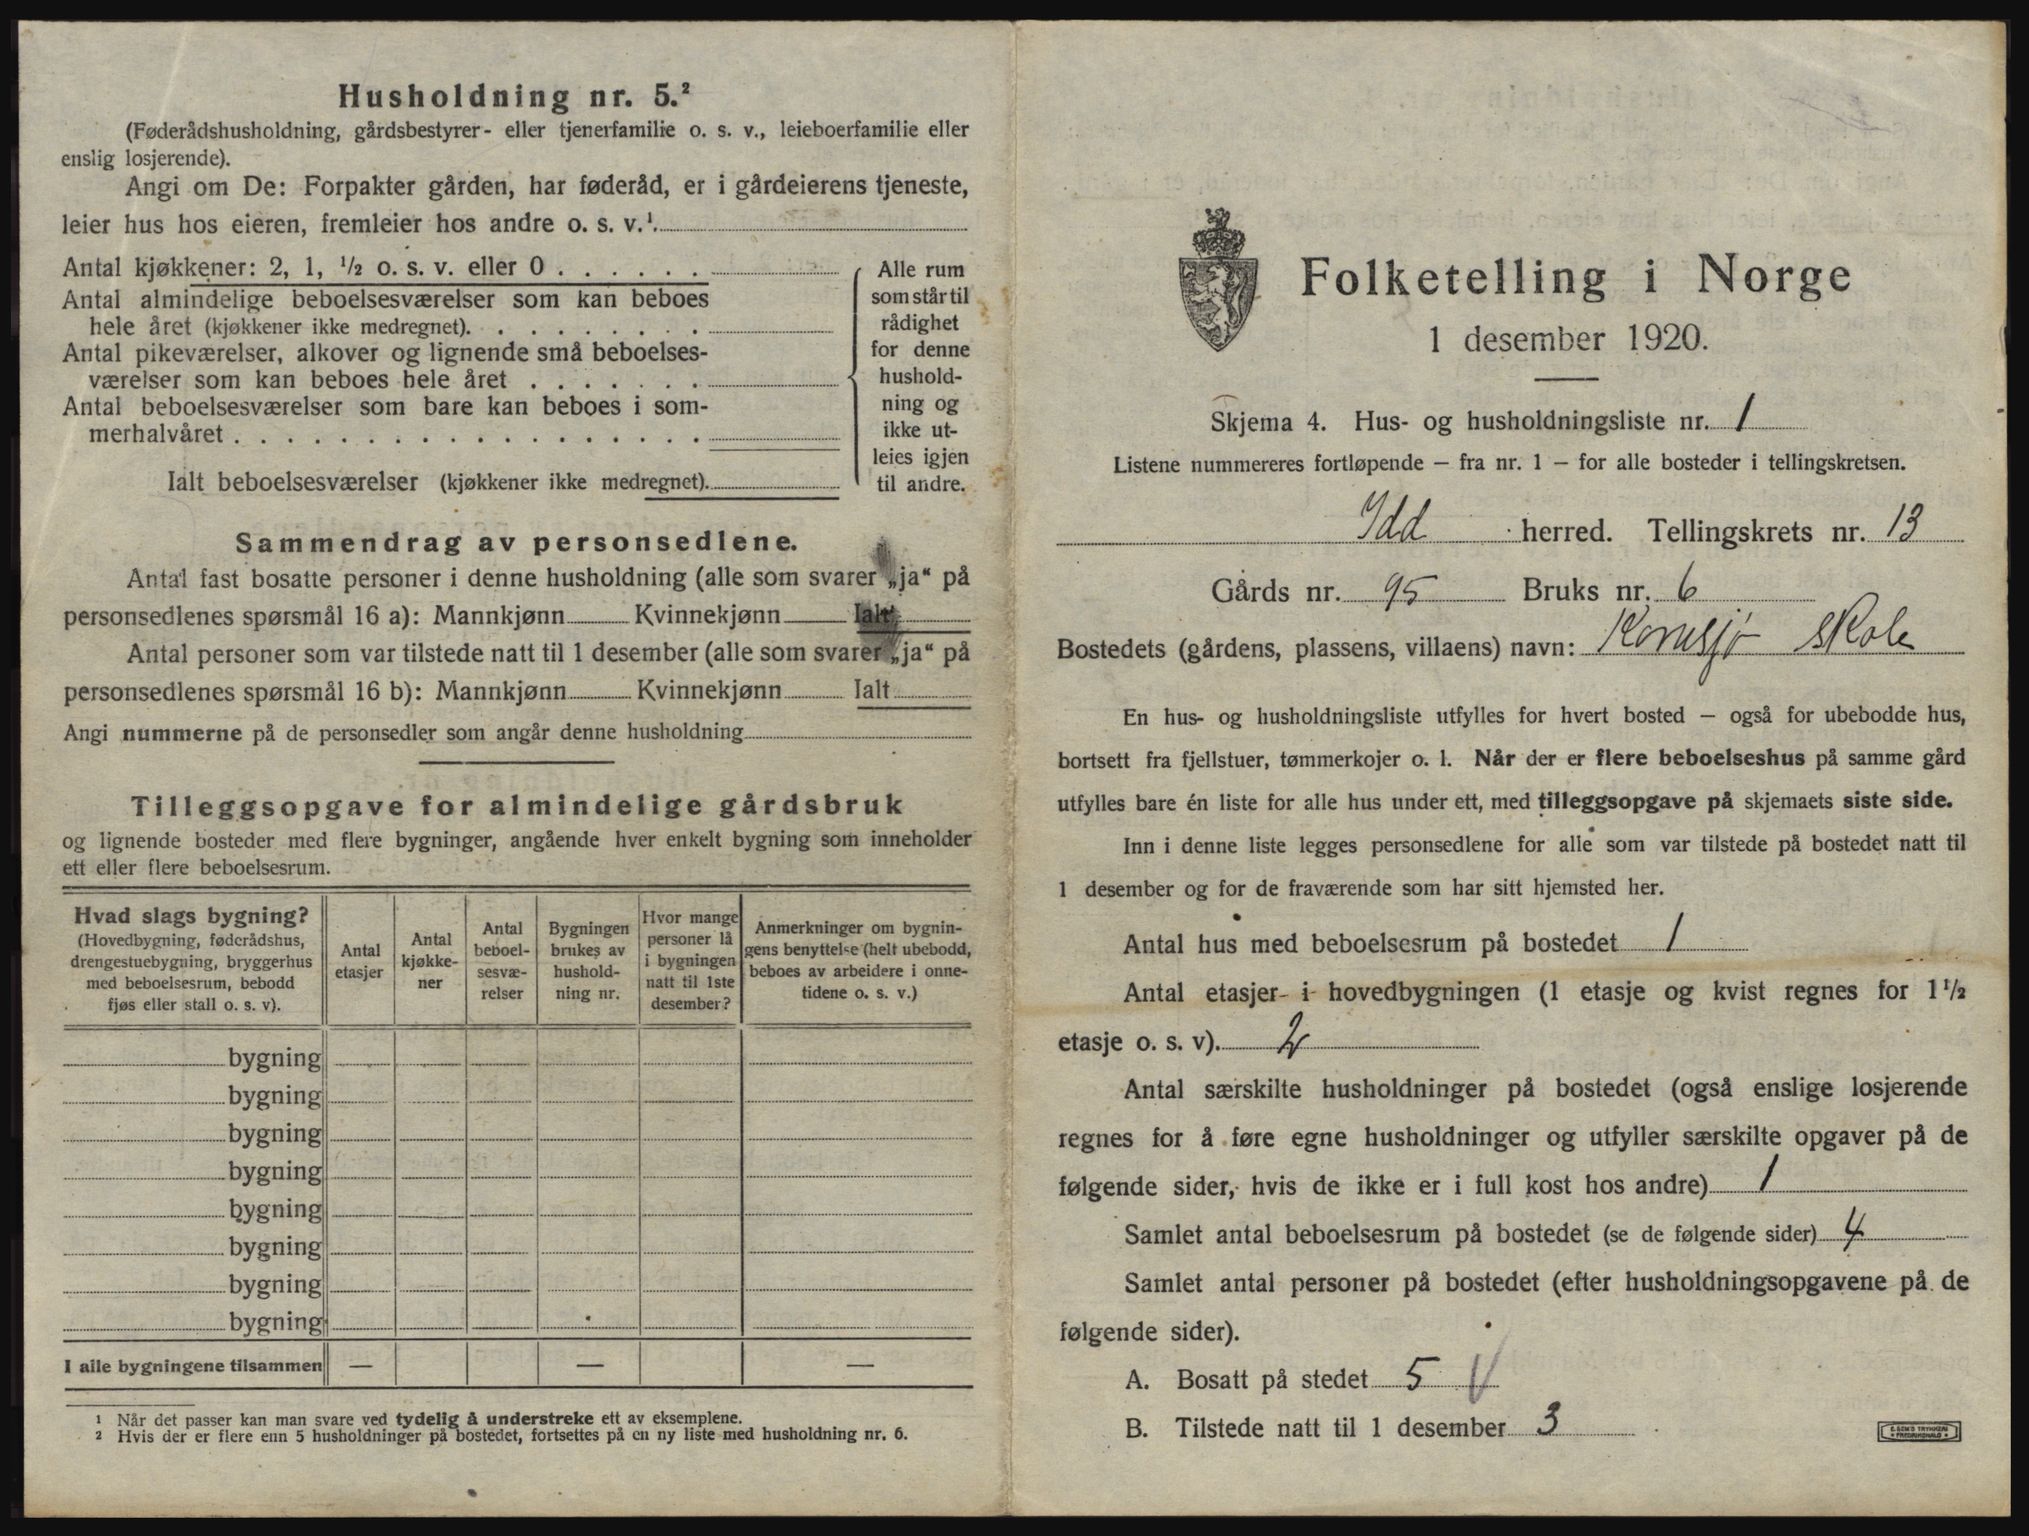 Husholdning nr. 5.²
(Føderådshusholdning, gårdsbestyrer- eller tjenerfamilie o. s. v., leieboerfamilie eller
enslig losjerende).
Angi om De: Forpakter gården, har føderåd, er i gårdeierens tjeneste,
leier hus hos eieren, fremleier hos andre o. s. v.¹.
Antal kjøkkener: 2, 1, ½ o. s. v. eller 0 . . . . . .
Antal almindelige beboelsesværelser som kan beboes
hele året (kjøkkener ikke medregnet). . . . . . . . .
Antal pikeværelser, alkover og lignende små beboelses-
værelser som kan beboes hele året . . . . . . .
Antal beboelsesværelser som bare kan beboes i som-
merhalvåret . . . . . . . . . . . . . . . . . .
Ialt beboelsesværelser (kjøkkener ikke medregnet).
Alle rum
som står til
rådighet
for denne
hushold-
ning og
ikke ut-
leies igjen
til andre.
Sammendrag av personsedlene.
Antal fast bosatte personer i denne husholdning (alle som svarer „ja“ på
personsedlenes spørsmål 16 a): Mannkjønn Kvinnekjønn Ialt
Antal personer som var tilstede natt til 1 desember (alle som svarer „ja“ på
personsedlenes spørsmål 16 b): Mannkjønn Kvinnekjønn Ialt
Angi nummerne på de personsedler som angår denne husholdning
Tilleggsopgave for almindelige gårdsbruk
og lignende bosteder med flere bygninger, angående hver enkelt bygning som inneholder
ett eller flere beboelsesrum.
Hvad slags bygning?
(Hovedbygning, føderådshus,
drengestuebygning, bryggerhus
med beboelsesrum, bebodd
fjøs eller stall o. s. v).
Antal
etasjer
Antal
kjøkke-
ner
Antal
beboel-
sesvæ-
relser
Bygningen
brukes av
hushold-
ning nr.
Hvor mange
personer lå
i bygningen
natt til 1ste
desember?
Anmerkninger om bygnin-
gens benyttelse (helt ubebodd,
beboes av arbeidere i onne-
tidene o. s. v.)
bygning
bygning
bygning
bygning
bygning
bygning
bygning
bygning
I alle bygningene tilsammen — — —
¹ Når det passer kan man svare ved tydelig å understreke ett av eksemplene.
² Hvis der er flere enn 5 husholdninger på bostedet, fortsettes på en ny liste med husholdning nr. 6.
Folketelling i Norge
1 desember 1920.
Skjema 4. Hus- og husholdningsliste nr. 1
Listene nummereres fortløpende – fra nr. 1 – for alle bosteder i tellingskretsen.
Idd herred. Tellingskrets nr. 13
Gårds nr. 95 Bruks nr. 6
Bostedets (gårdens, plassens, villaens) navn: Kornsjø skole
En hus- og husholdningsliste utfylles for hvert bosted – også for ubebodde hus,
bortsett fra fjellstuer, tømmerkojer o. l. Når der er flere beboelseshus på samme gård
utfylles bare én liste for alle hus under ett, med tilleggsopgave på skjemaets siste side.
Inn i denne liste legges personsedlene for alle som var tilstede på bostedet natt til
1 desember og for de fraværende som har sitt hjemsted her.
Antal hus med beboelsesrum på bostedet 1
Antal etasjer i hovedbygningen (1 etasje og kvist regnes for 1½
etasje o. s. v). 2
Antal særskilte husholdninger på bostedet (også enslige losjerende
regnes for å føre egne husholdninger og utfyller særskilte opgaver på de
følgende sider, hvis de ikke er i full kost hos andre) 1
Samlet antal beboelsesrum på bostedet (se de følgende sider) 4
Samlet antal personer på bostedet (efter husholdningsopgavene på de
følgende sider).
A. Bosatt på stedet 5
B. Tilstede natt til 1 desember 3